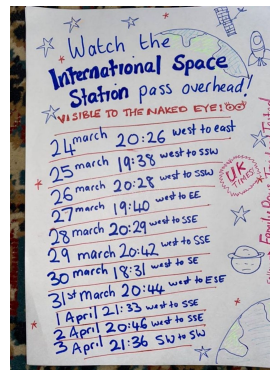 Watch the
International Space
Station pass overhead!
VISIBLE TO THE NAKED EYE!
24 march 20:26 west to east
25 march 19:38 west to SSW
26 march 20:28 west to SSW
27 march 19:40 west to EE
28 march 20:29 west to SSE
29 march 20:42 west to SSE
30 march 18:31 west to SE
31st March 20:44 west to ESE
1 April 21:33 west to SSE
2 April 20:46 west to SSE
3 April 21:36 SW to SW
UK
TIMES